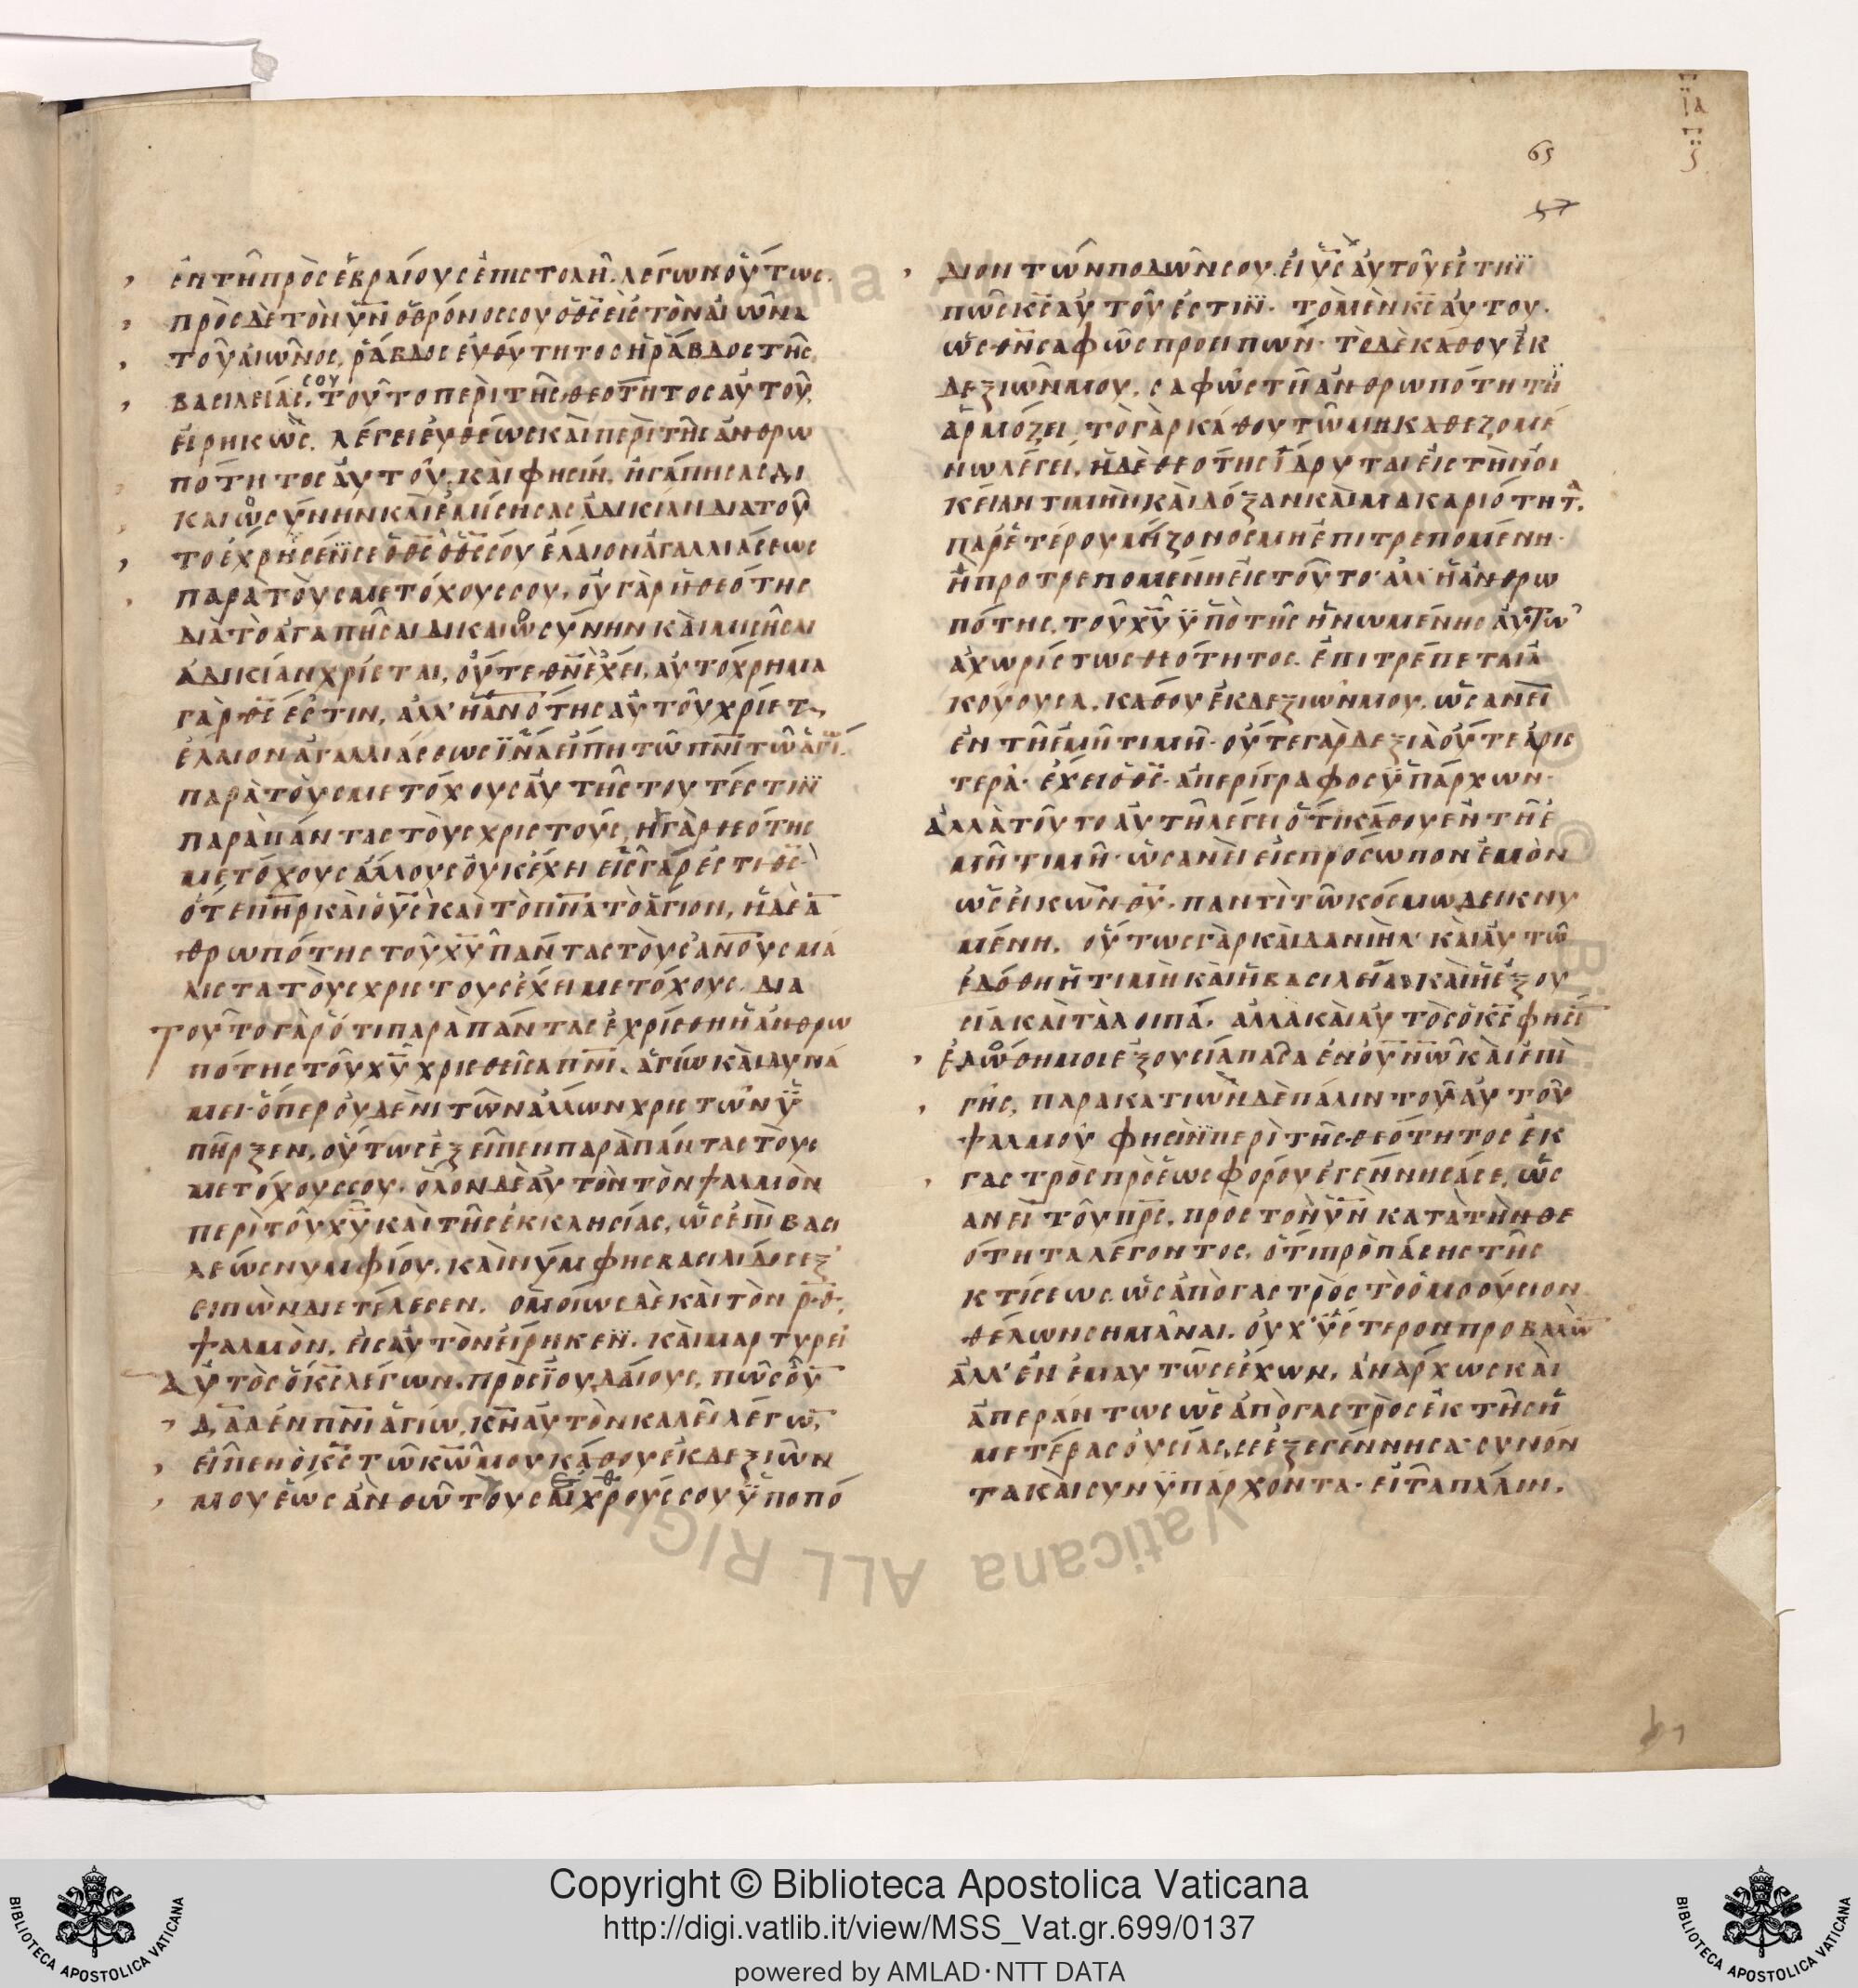 ἐν τῆ πρὸς ἑβραίους ἐπιστολῆ. λέγων οὕτως.
πρὸς δὲ τὸν υν ὁ θρόνος σου ὁ θς εἰς τὸν αἰῶνα
τοῦ αἰῶνος, ῥάβδος εὐθύτητος ἡ ῥάβδος τῆς
βασιλείας σου. τοῦτο περὶ τῆς θεότητος αὐτοῦ,
εἰρηκὼς. λέγει εὐθέως καὶ περὶ τῆς ἀνθρω
πότητος αὐτοῦ, καὶ φησίν, ἠγάπησας δι
καιοσύνην καὶ ἐμίσησας ἀδικίαν διατοῦ
το ἔχρησέν σε ὁ θς ὁ θς σου ἔλαιον ἀγαλλιάσεως
παρὰ τοὺς μετόχους σου, οὐ γὰρ ἡ θεότης
διὰ τὸ ἀγαπῆσαι δικαιοσύνην καὶ μισῆσαι
ἀδικίαν χρίεται, οὔτε θν ἔχει, αὐτόχρημα
γὰρ θς ἐστιν, ἀλλ' ἡ ανότης αὐτοῦ χρίετ
ἔλαιον ἀγαλλιάσεως ἵνα εἴπη τῶ πνι τῶ ἁγί
παρὰ τοὺς μετόχους αὐτῆς τουτέστιν
παρὰ πάντας τοὺς χριστούς, ἡ γὰρ θεότης
μετόχους ἄλλους οὐκ ἔχει εἷς γάρ ἐστι θς
ὅτε πηρ καὶ ὁ υς καὶ τὸ πνα τὸ ἅγιον, ἡ δὲ α
θρωπότης τοῦ χυ πάντας τοὺς ανους μά
λιστα τοὺς χριστοὺς ἔχει μετόχους. δια
τοῦτο γὰρ ὅτι παρὰ πάντας ἐχρίσθη ἡ ἀνθρω
πότης τοῦ χυ χρισθεῖσα πνι ἁγίω καὶ δυνά
μει· ὅπερ οὐδενὶ τῶν ἄλλων χριστῶν ὑ
πῆρξεν, οὕτως ἐξεῖπεν παρὰ πάντας τοὺς
μετόχους σου. ὅλον δὲ αὐτὸν τὸν ψαλμὸν
περὶ τοῦ χυ καὶ τῆς ἐκκλησίας, ὡς ἐπὶ βασι
λέως νυμφίου, καὶ νύμφης βασιλίδος ἐξ
ειπὼν διετέλεσεν. ὁμοίως δὲ καὶ τὸν ρθ,
ψαλμὸν, εἰς αὐτὸν εἴρηκεν. καὶ μαρτυρεῖ
αὐτὸς ὁ κς λέγων, πρὸς ἰουδαίους, πῶς οὖ
δαδ ἐν πνι ἁγίω, κν αὐτὸν καλεῖ λέγω,
εἶπεν ὁ κς τῶ κω μου κάθου ἐκ δεξιῶν
μου ἕως ἂν θῶ τοὺς ἐχθρούς σου ὑποπό
διον τῶν ποδῶν σου. εἰ υς αὐτοῦ ἐστιν
πῶς κς αὐτοῦ ἐστιν. τὸ μὲν κς αὐτου.
ὡς θν σαφῶς προειπών· τὸ δὲ κάθου ἐκ
δεξιῶν μου, σαφῶς τῆ ἀνθρωπότητι
ἁρμόζει, τὸ γὰρ κάθου τῶ μὴ καθεζομέ
νω λέγει, ἡ δὲ θεότης ἵδρυται εἰς τὴν οἰ
κείαν τιμὴν καὶ δόξαν καὶ μακαριότητ.
παρ' ἑτέρου μείζονος μὴ ἐπιτρεπομένη·
ἢ προτρεπομένη εἰς τοῦτο· ἀλλ' ἡ ἀνθρω
πότης, τοῦ χυ ὑπὸ τῆς ἡνωμένης αὐτῶ
ἀχωρίστως θεότητος. ἐπιτρέπεται ἀ
κούουσα, κάθου ἐκ δεξιῶν μου, ὡς ανει
ἐν τῆ ἐμῆ τιμῆ· οὔτε γὰρ δεξιὰ οὔτε ἀρις
τερὰ· ἔχει ὁ θς· ἀπερίγραφος ὑπάρχων·
ἀλλὰ τοῦτο αὐτῆ λέγει ὅτι κάθου ἐν τῆ ἐ
μῆ τιμῆ· ὡσανεὶ εἰς πρόσωπον ἐμὸν
ὡς εἰκὼν θυ· παντὶ τῶ κόσμω δεικνυ
μένη. οὕτως γὰρ καὶ δανιὴλ· καὶ αὐτῶ
ἐδόθη ἡ τιμὴ καὶ ἡ βασιλεία καὶ ἡ ἐξου
σία καὶ τὰ λοιπά. ἀλλὰ καὶ αὐτὸς ὁ κς φησι
ἐδόθη μοι ἐξουσία πᾶσα ἐν ουνω καὶ ἐπὶ
γῆς, παρακατιὼν δὲ πάλιν τοῦ αὐτοῦ
ψαλμοῦ φησὶν περὶ τῆς θεότητος ἐκ
γαστρὸς πρὸ ἑωσφόρου ἐγέννησά σε, ὡς
ανει τοῦ πρς, πρὸς τὸν υν κατὰ τὴν θε
ότητα λέγοντος, ὅτι πρὸ πάσης τῆς
κτίσεως ὡς ἀπὸ γαστρὸς τὸ ὁμοούσιον
θέλων σημᾶναι. οὐχ ὕστερον προβαλὼ
ἀλλ' ἐν ἐμαυτῶ σε ἔχων, ἀνάρχως καὶ
ἀπεράντως ὡς ἀπὸ γαστρὸς ἐκ τῆς ἡ
μετέρας οὐσίας, σε ἐξεγέννησα· συνόν
τα καὶ συνυπάρχοντα· εἶτα πάλιν.
65
57
Copyright © Biblioteca Apostolica Vaticana
http://digi.vatlib.it/view/MSS_Vat.gr.699/0137
powered by AMLAD·NTT DATA
BIBLIOTECA APOSTOLICA VATICANA
BIBLIOTECA APOSTOLICA VATICANA